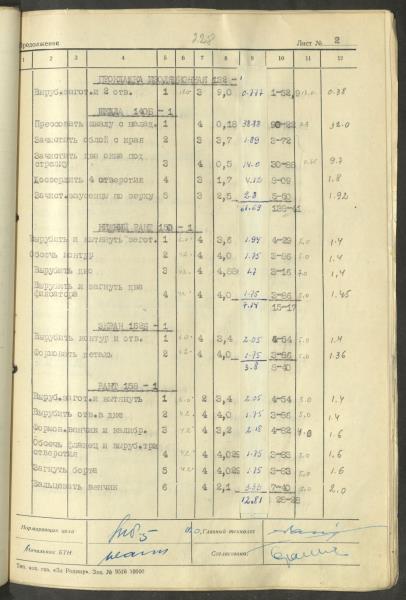 228
Продолжение Лист № 2
1 2 3 4 5 6 7 8 9 10 11 12
ПРОКЛАДКА ИЗОЛЯЦИОННАЯ 132-1
Вырубить загот. и 2 отв. 1 3 9,0 0.777 1-52,9 0.38
ШКАЛА 140Б - 1
Прессовать шкалу с налад. 1 4 0,18 38.88 90-22 32.0
Зачистить облой с края 2 3 3,7 1.89 3-72
Зачистить два окна под
стрелку 3 4 0,5 14.0 30-86 9.7
Досверлить 4 отверстия 4 3 1,7 4.12 9-09 1.8
Зачист. заусенцы по верху 5 3 2,5 2.8 5-50 1.92
61.69
НИЖНИЙ РАНТ 150 - 1
Вырубить и вытянуть загот. 1 4 3,6 1.94 4-29 5.0 1.4
Обсечь контур 2 4 4,0 1.75 3-86 5.0 1.4
Вырубить дно 3 4 1.7 3-16 7.0 1.4
Вырубить и загнуть два
фиксатора 4 4 4,0 1.75 3-86 5.0 1.45
15-17
ЭКРАН 152Б - 1
Вырубить контур и отв. 1 4 3,4 2.05 4-54 5.0 1.4
Формовать деталь 2 4 4,0 1.75 3-86 5.0 1.36
3.8 8-40
РАНТ 158 - 1
Выруб. загот. и вытянуть 1 2 3,4 2.05 4-54 5.0 1.4
Вырубить отв. в дне 2 4 4,0 1.75 3-86 5.0 1.4
Формов. венчик и калибр. 3 4 3,2 2.18 4-82 1.6
Обсечь фланец и выруб. три
отверстия 4 4 1.75 3-83 5.0 1.6
Загнуть борта 5 4 1.75 3-83 5.0 1.6
Вальцовать венчик 6 4 2,1 3.33 7-40 2.0
12.81 28-28
Нормировщик цеха Главный технолог
Начальник БТН Согласовано:
Тип. изд. газ. „За Родину". Зак. № 9506 10000